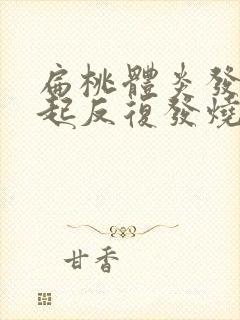 扁桃體炎發
起反復發燒
甘香